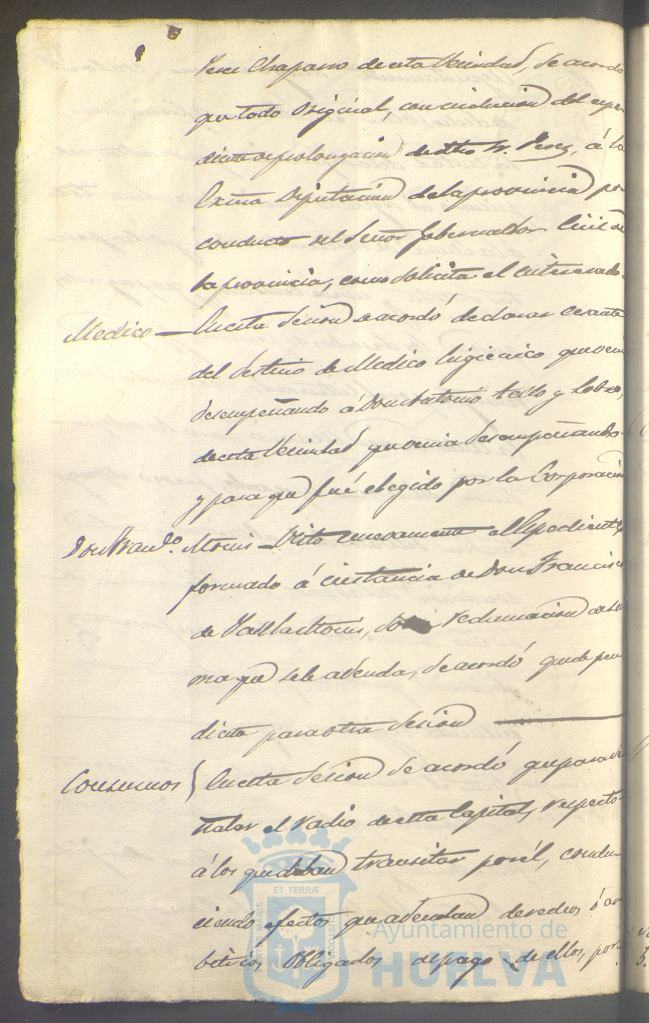 Perez Chaparro de esta Vecindad, se acordó
que todo original, con inclusion del espe
diente de prolongacion de dho Sr. Perez, á la
Exma Diputacion de la provincia por
conducto del Señor Gobernador Civil de
la provincia, como solicita el interesado.
Medico — En esta Sesion se acordó declarar cesante
del destino de Medico higienico que venia
desempeñando á Don Antonio Tello y Lobo,
de esta Vecindad que venia desempeñando
y para que fué elegido por la Corporacion
Don Franco. Monis — Visto nuevamente el Espediente
formado á instancia de Don Francisco
de Paula Monis, reclamacion de su
ma que se le adeuda, se acordó quede pen
diente para otra Sesion
Consumos } En esta Sesion se acordó que para
el radio de esta Capital, respecto
á los que deban transitar por él, condu
ciendo efectos que adeudan derechos ó ar
bitrios, obligados de pago de ellos, por
ET TERRÆ
Ayuntamiento de
HUELVA